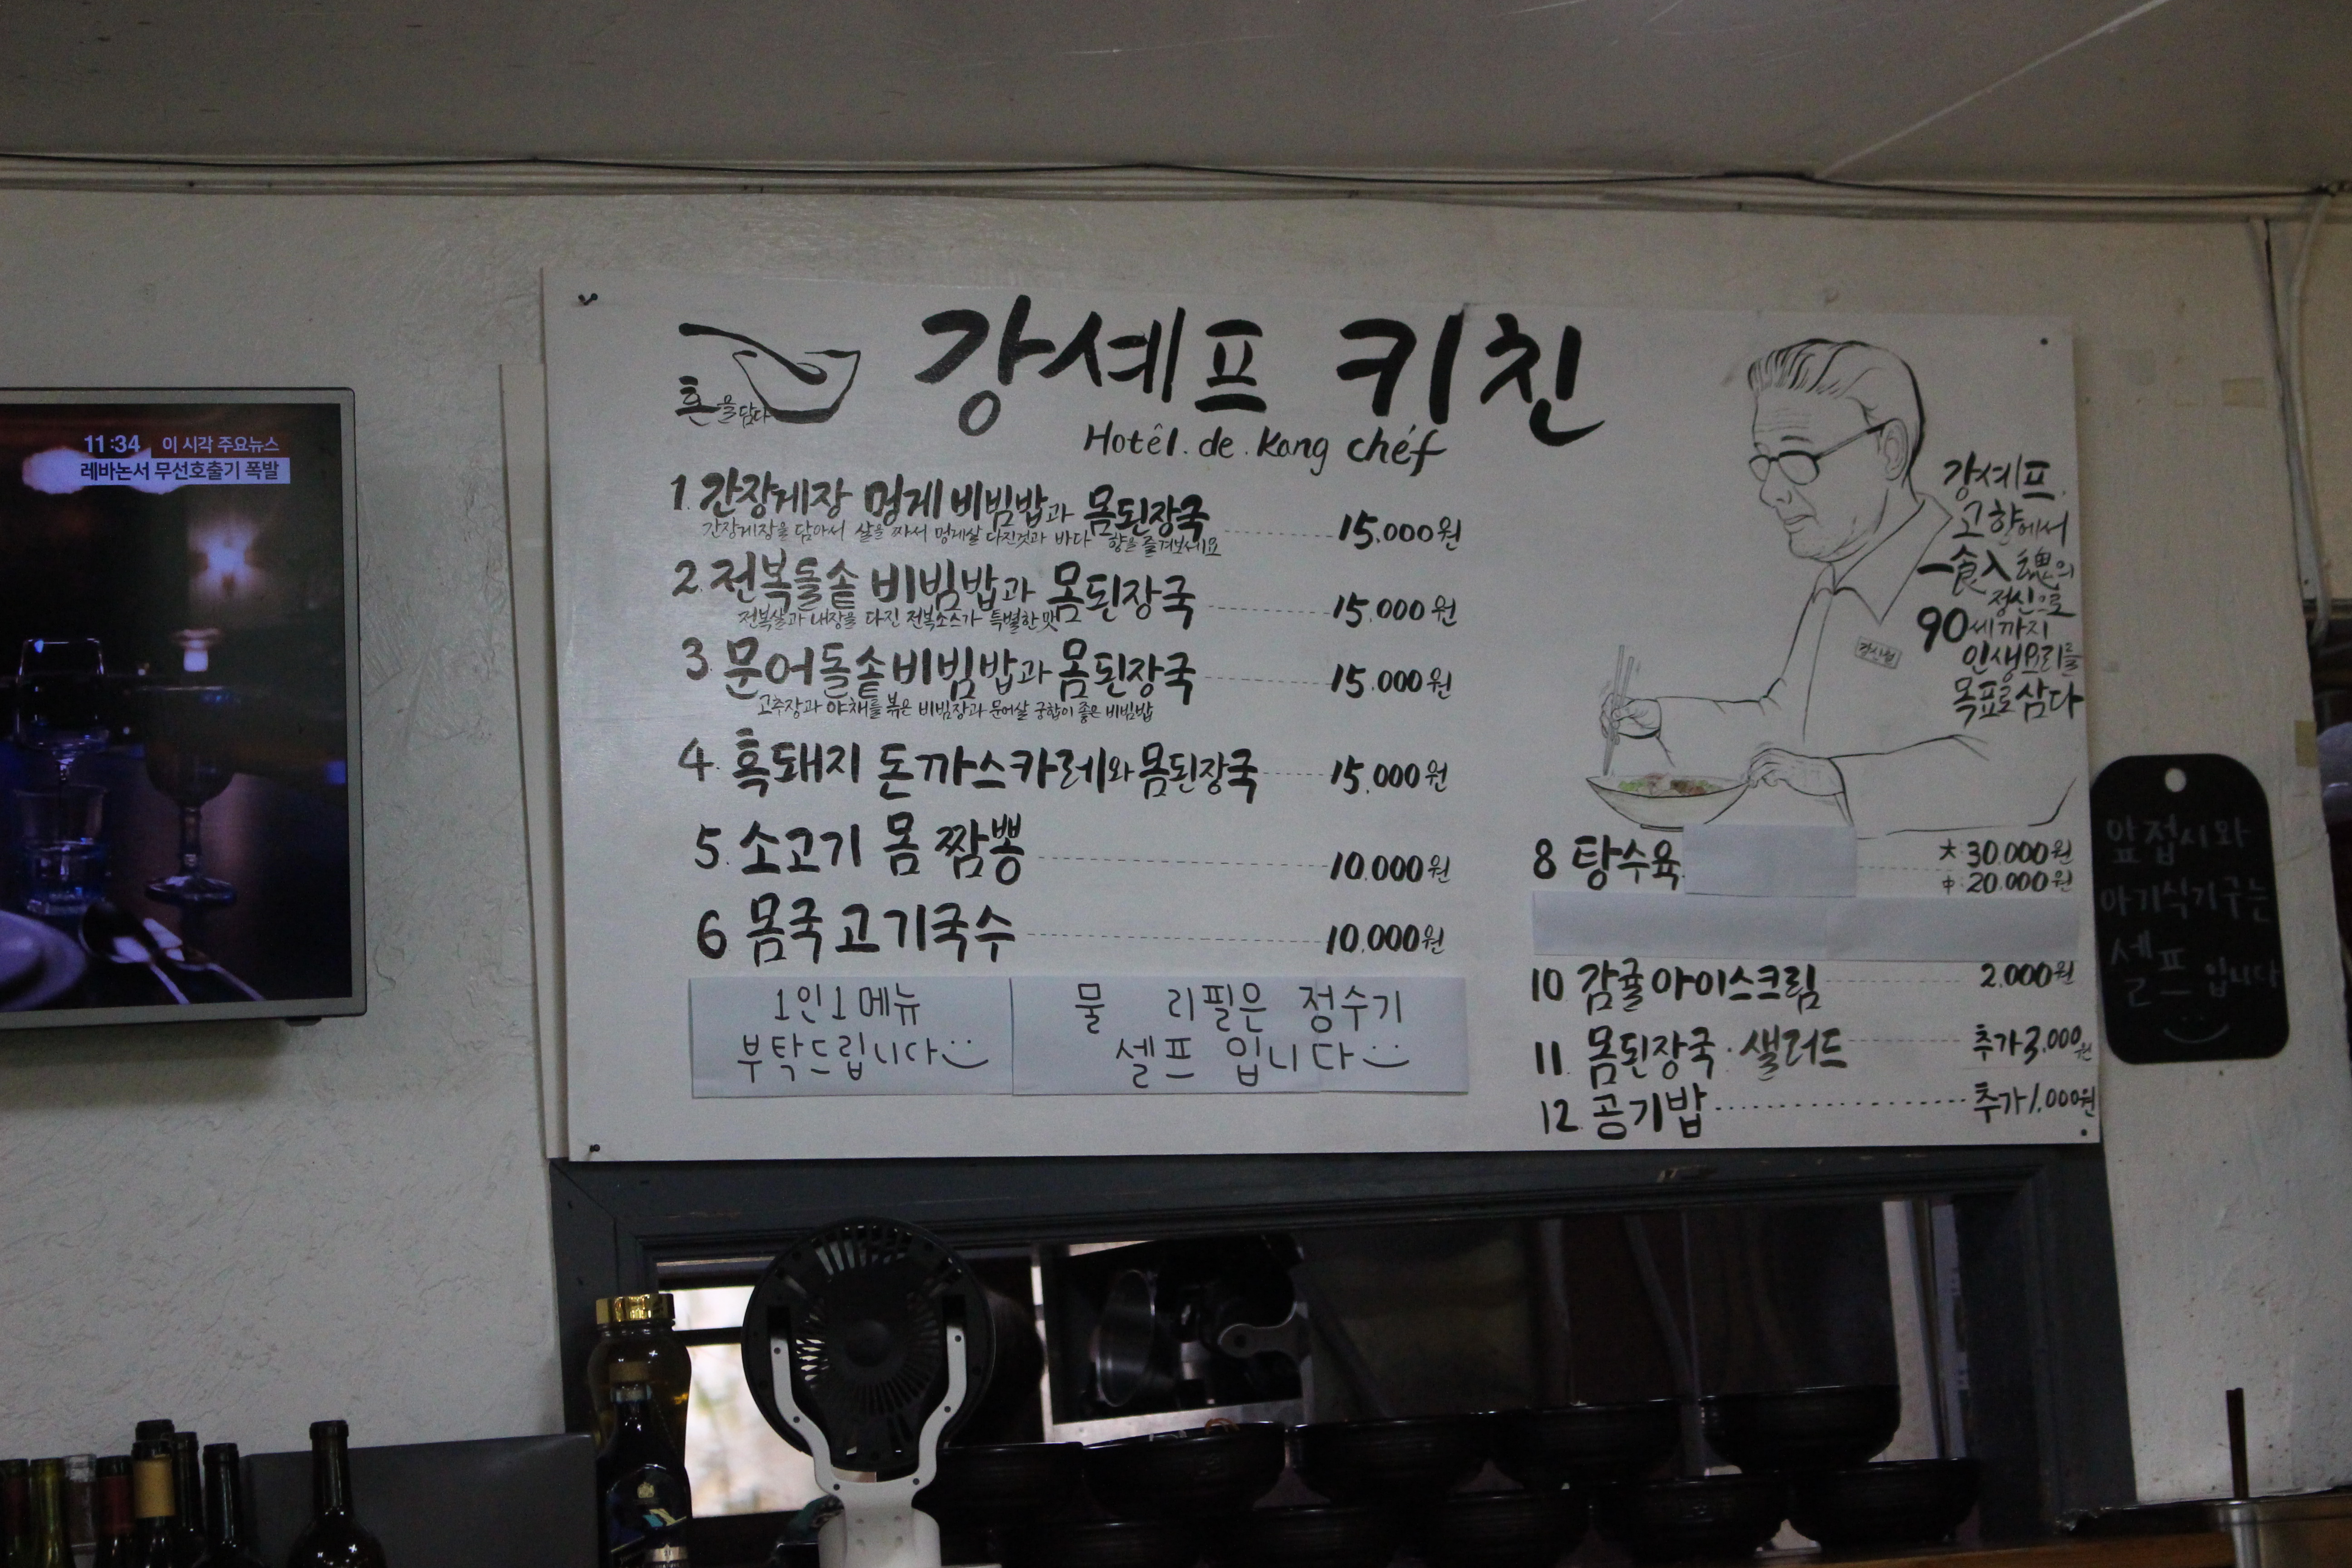 11:34 이 시각 주요뉴스
레바논서 무선호출기 폭발
혼을담다
강셰프 키친
Hotêl.de.Kang chéf
1. 간장게장 멍게비빔밥과 몸된장국 15.000원
간장게장을 담아서 살을 짜서 멍게살 다진것과 바다 향을 즐겨보세요
2. 전복돌솥 비빔밥과 몸된장국 15.000원
전복살과 내장을 다진 전복소스가 특별한 맛
3. 문어돌솥비빔밥과 몸된장국 15.000원
고추장과 야채를 볶은 비빔장과 문어살 궁합이 좋은 비빔밥
4. 흑돼지 돈까스카레와 몸된장국 15.000원
5. 소고기 몸 짬뽕 10.000원
6 몸국고기국수 10.000원
1인1메뉴
부탁드립니다
물 리필은 정수기
셀프 입니다
강셰프
고향에서
一食入魂의
정신으로
90세까지
인생요리를
목표로 삼다
8 탕수육 大:30.000원
中:20.000원
10 감귤아이스크림 2.000원
11. 몸된장국·샐러드 추가3.000원
12. 공기밥 추가1.000원
앞접시와
아기식기구는
셀프입니다